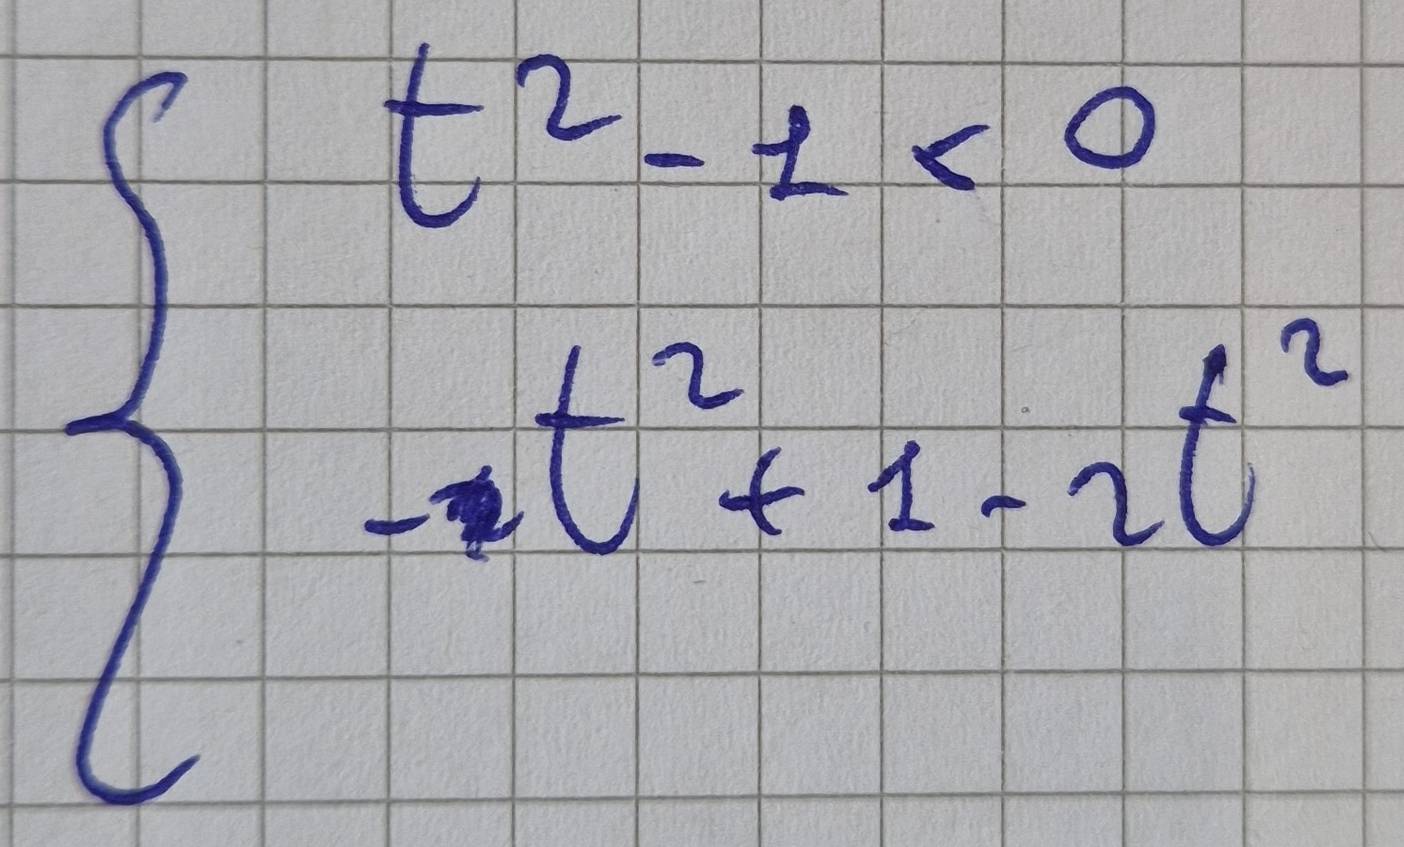 t² - 1 < 0
- t² + 1 - 2t²